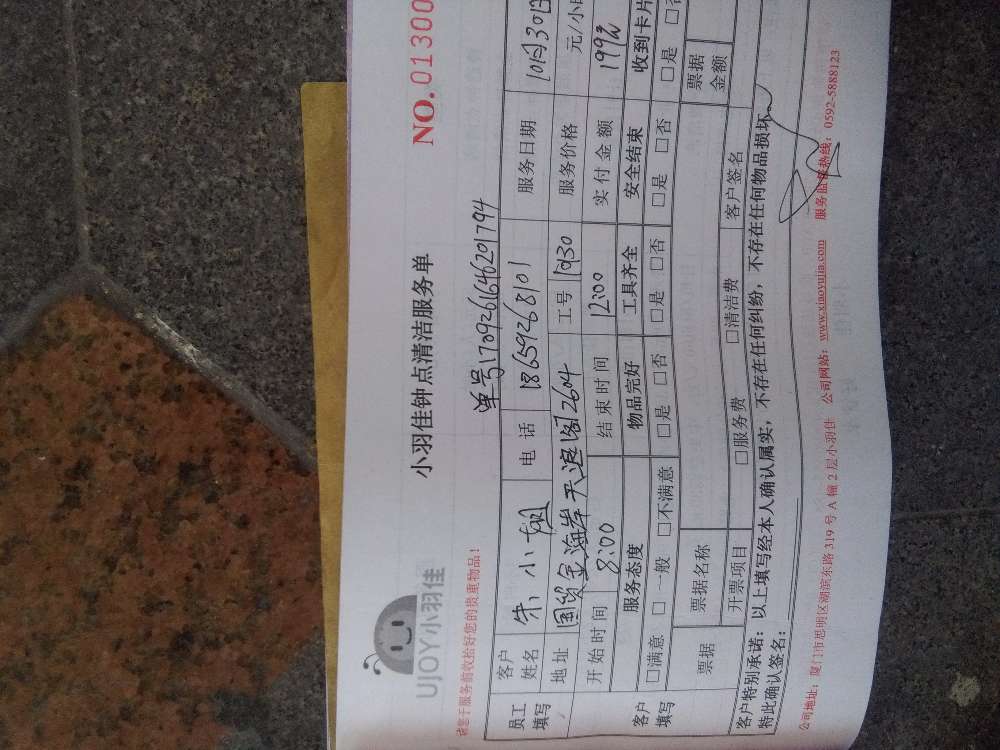 UJOY小羽佳
小羽佳钟点清洁服务单
NO.01300
请您于服务前收拾好您的贵重物品!
单号1709261646201794
员工填写 客户姓名 朱小姐 电话 18659268101 服务日期 10月30日
地址 国贸金海岸天浪阁2604 工号 1030 服务价格 元/小时
开始时间 8:00 结束时间 12:00 实付金额 199元
客户填写 服务态度 物品完好 工具齐全 安全结束 收到卡片
□满意 □一般 □不满意 □是 □否 □是 □否 □是 □否 □是 □否
票据 票据名称 □服务费 □清洁费 票据金额
开票项目 客户签名
客户特别承诺:以上填写经本人确认属实,不存在任何纠纷,不存在任何物品损坏
特此确认签名:
公司地址:厦门市思明区湖滨东路319号A幢2层小羽佳 公司网站:www.xiaoyujia.com 服务监督热线:0592-5888123